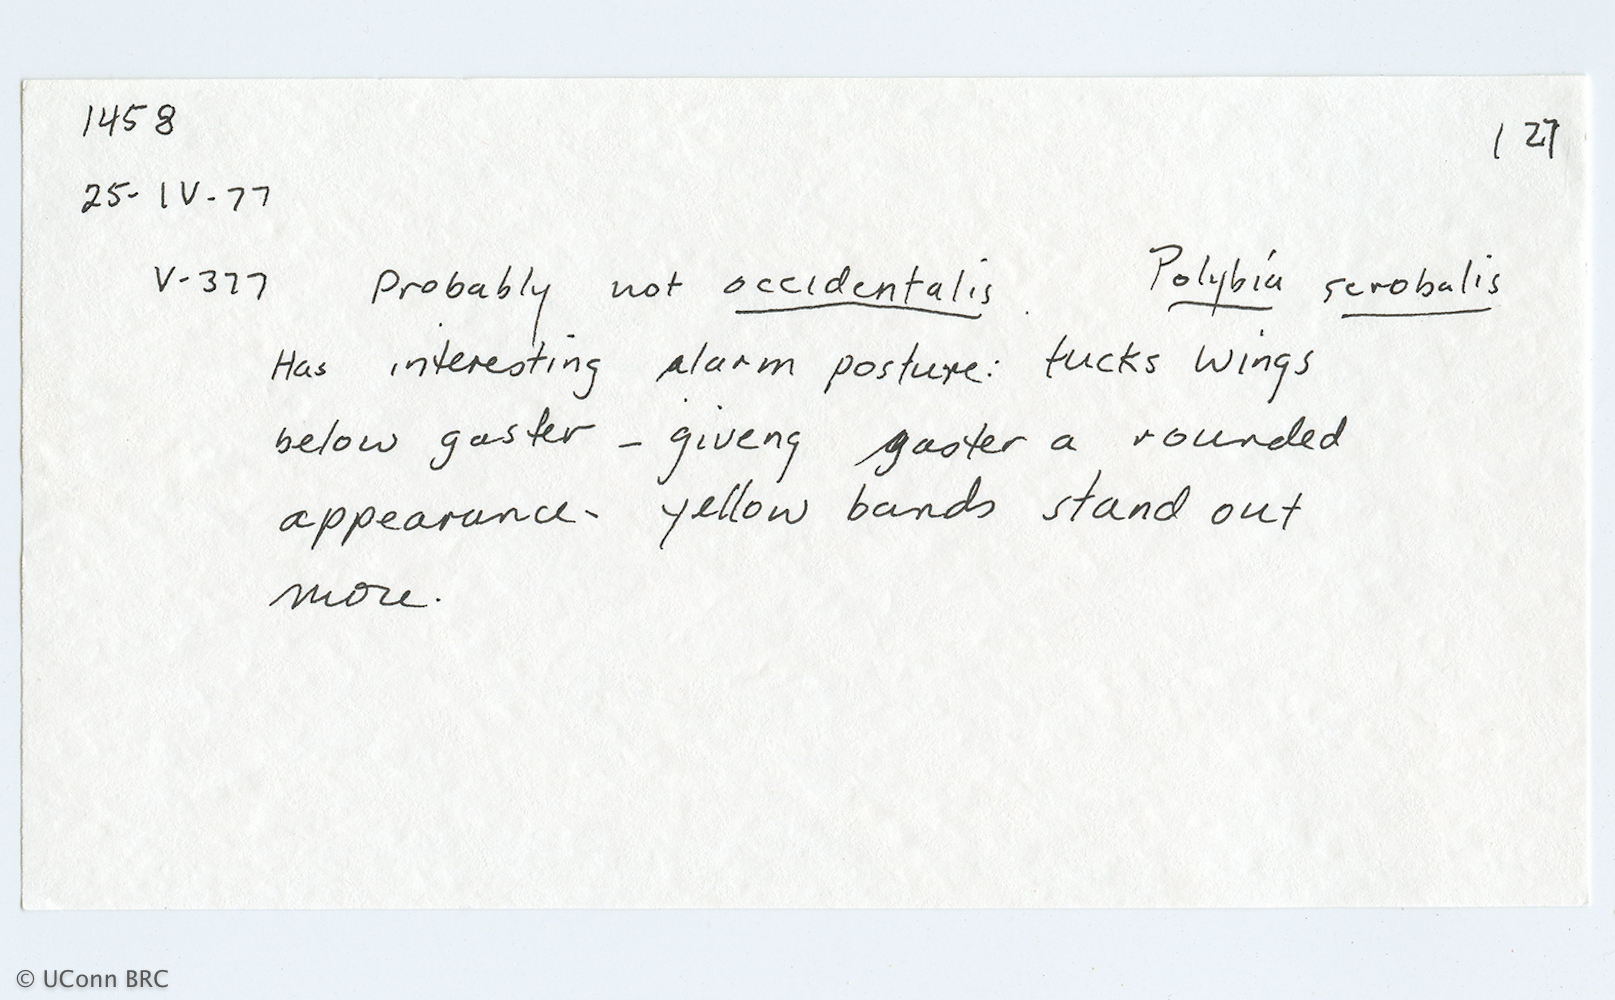 1458
127
25-IV-77
V-377 Probably not occidentalis. Polybia scrobalis
Has interesting alarm posture: tucks wings
below gaster - giveng gaster a rounded
appearance - yellow bands stand out
more.
© UConn BRC